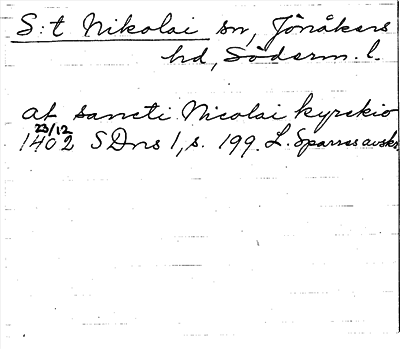 S:t Nikolai sn, Jönåkers
hd, Söderm. l.
at sancti Nicolai kyrckio
23/12
1402 SDns 1, s. 199. L. Sparres avskr.